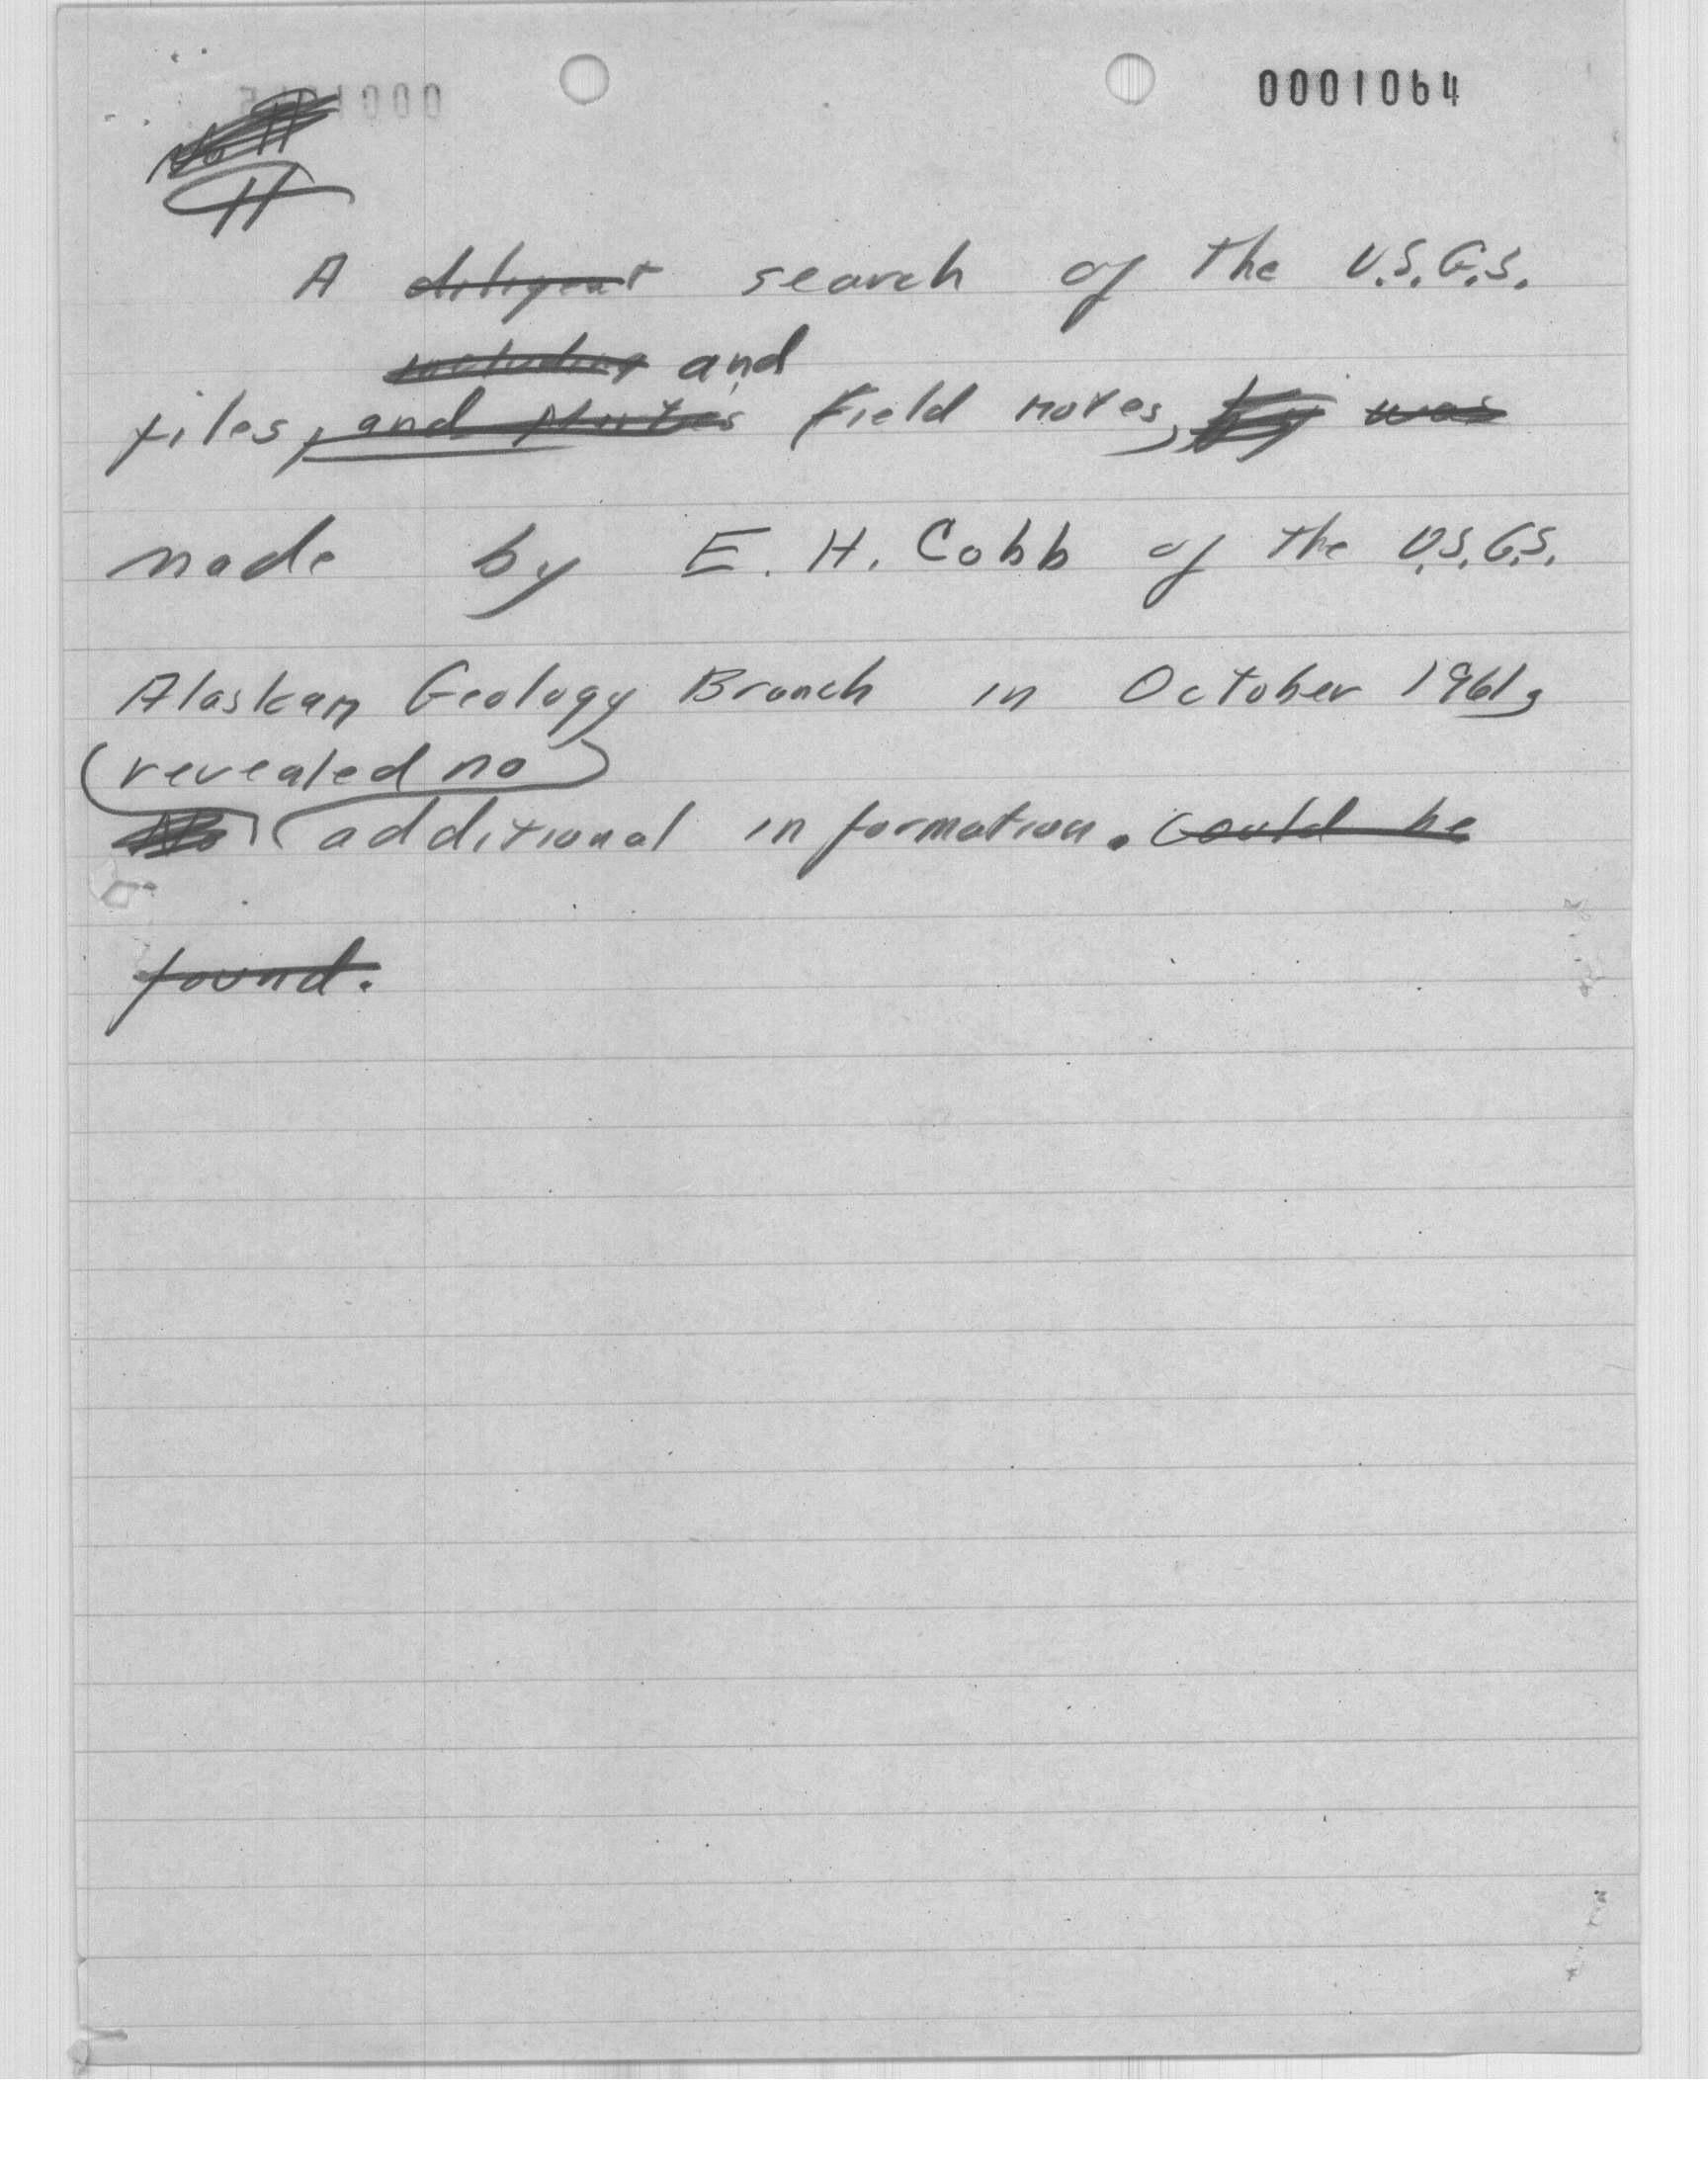 0001064
A diligent search of the U.S.G.S.
including and
files, and Notes field notes, by was
made by E. H. Cobb of the U.S.G.S.
Alaskan Geology Branch in October 1961,
revealed no
No additional information. Could be
found.